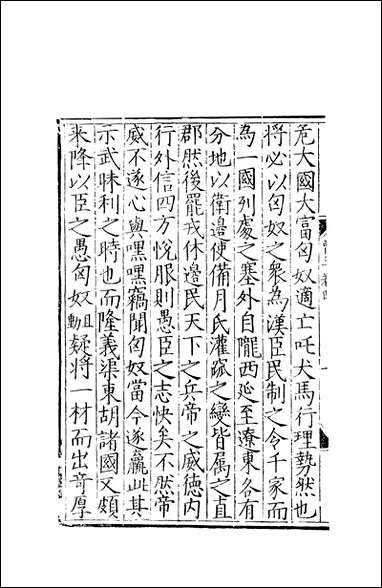 危大國大富匈奴適亡吒犬馬行理勢然也
將必以匈奴之衆為漢臣民制之令千家而
為一國列處之塞外自隴西延至遼東各有
分地以衛邊使備月氏灌窳之變皆屬之直
郡然後罷戎休邊民天下之兵帝之威德内
行外信四方悅服則愚臣之志快矣不然帝
威不遂心與嘿嘿竊聞匈奴當今遂羸此其
示武昧利之時也而隆義渠東胡諸國又頗
来降以臣之愚匈奴且動疑將一材而出奇厚